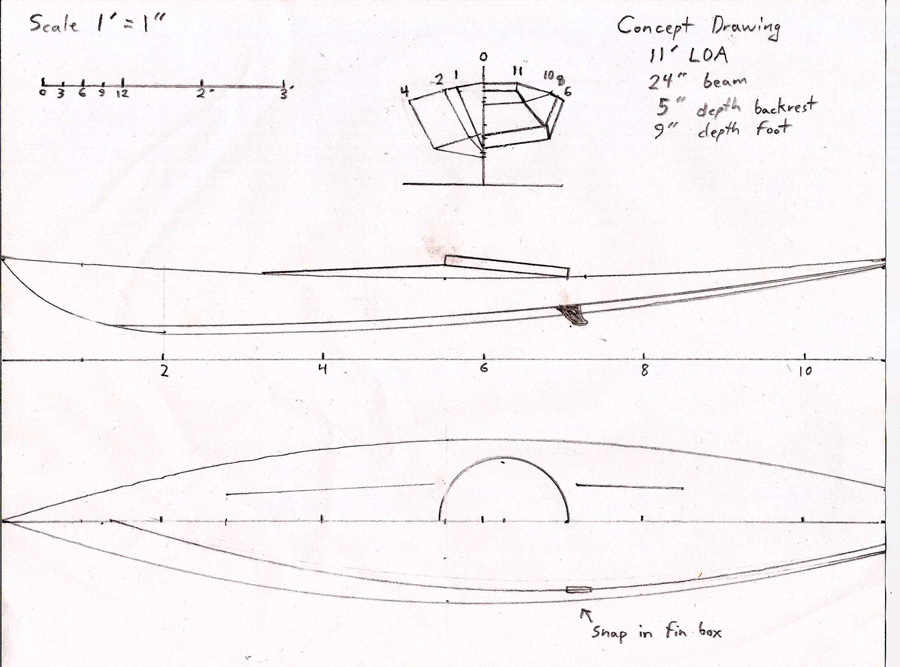 Scale 1' = 1"
0 3 6 9 12 2' 3'
Concept Drawing
11' LOA
24" beam
5" depth backrest
9" depth foot
0
4 2 1 11 10 8 6
2 4 6 8 10
snap in fin box